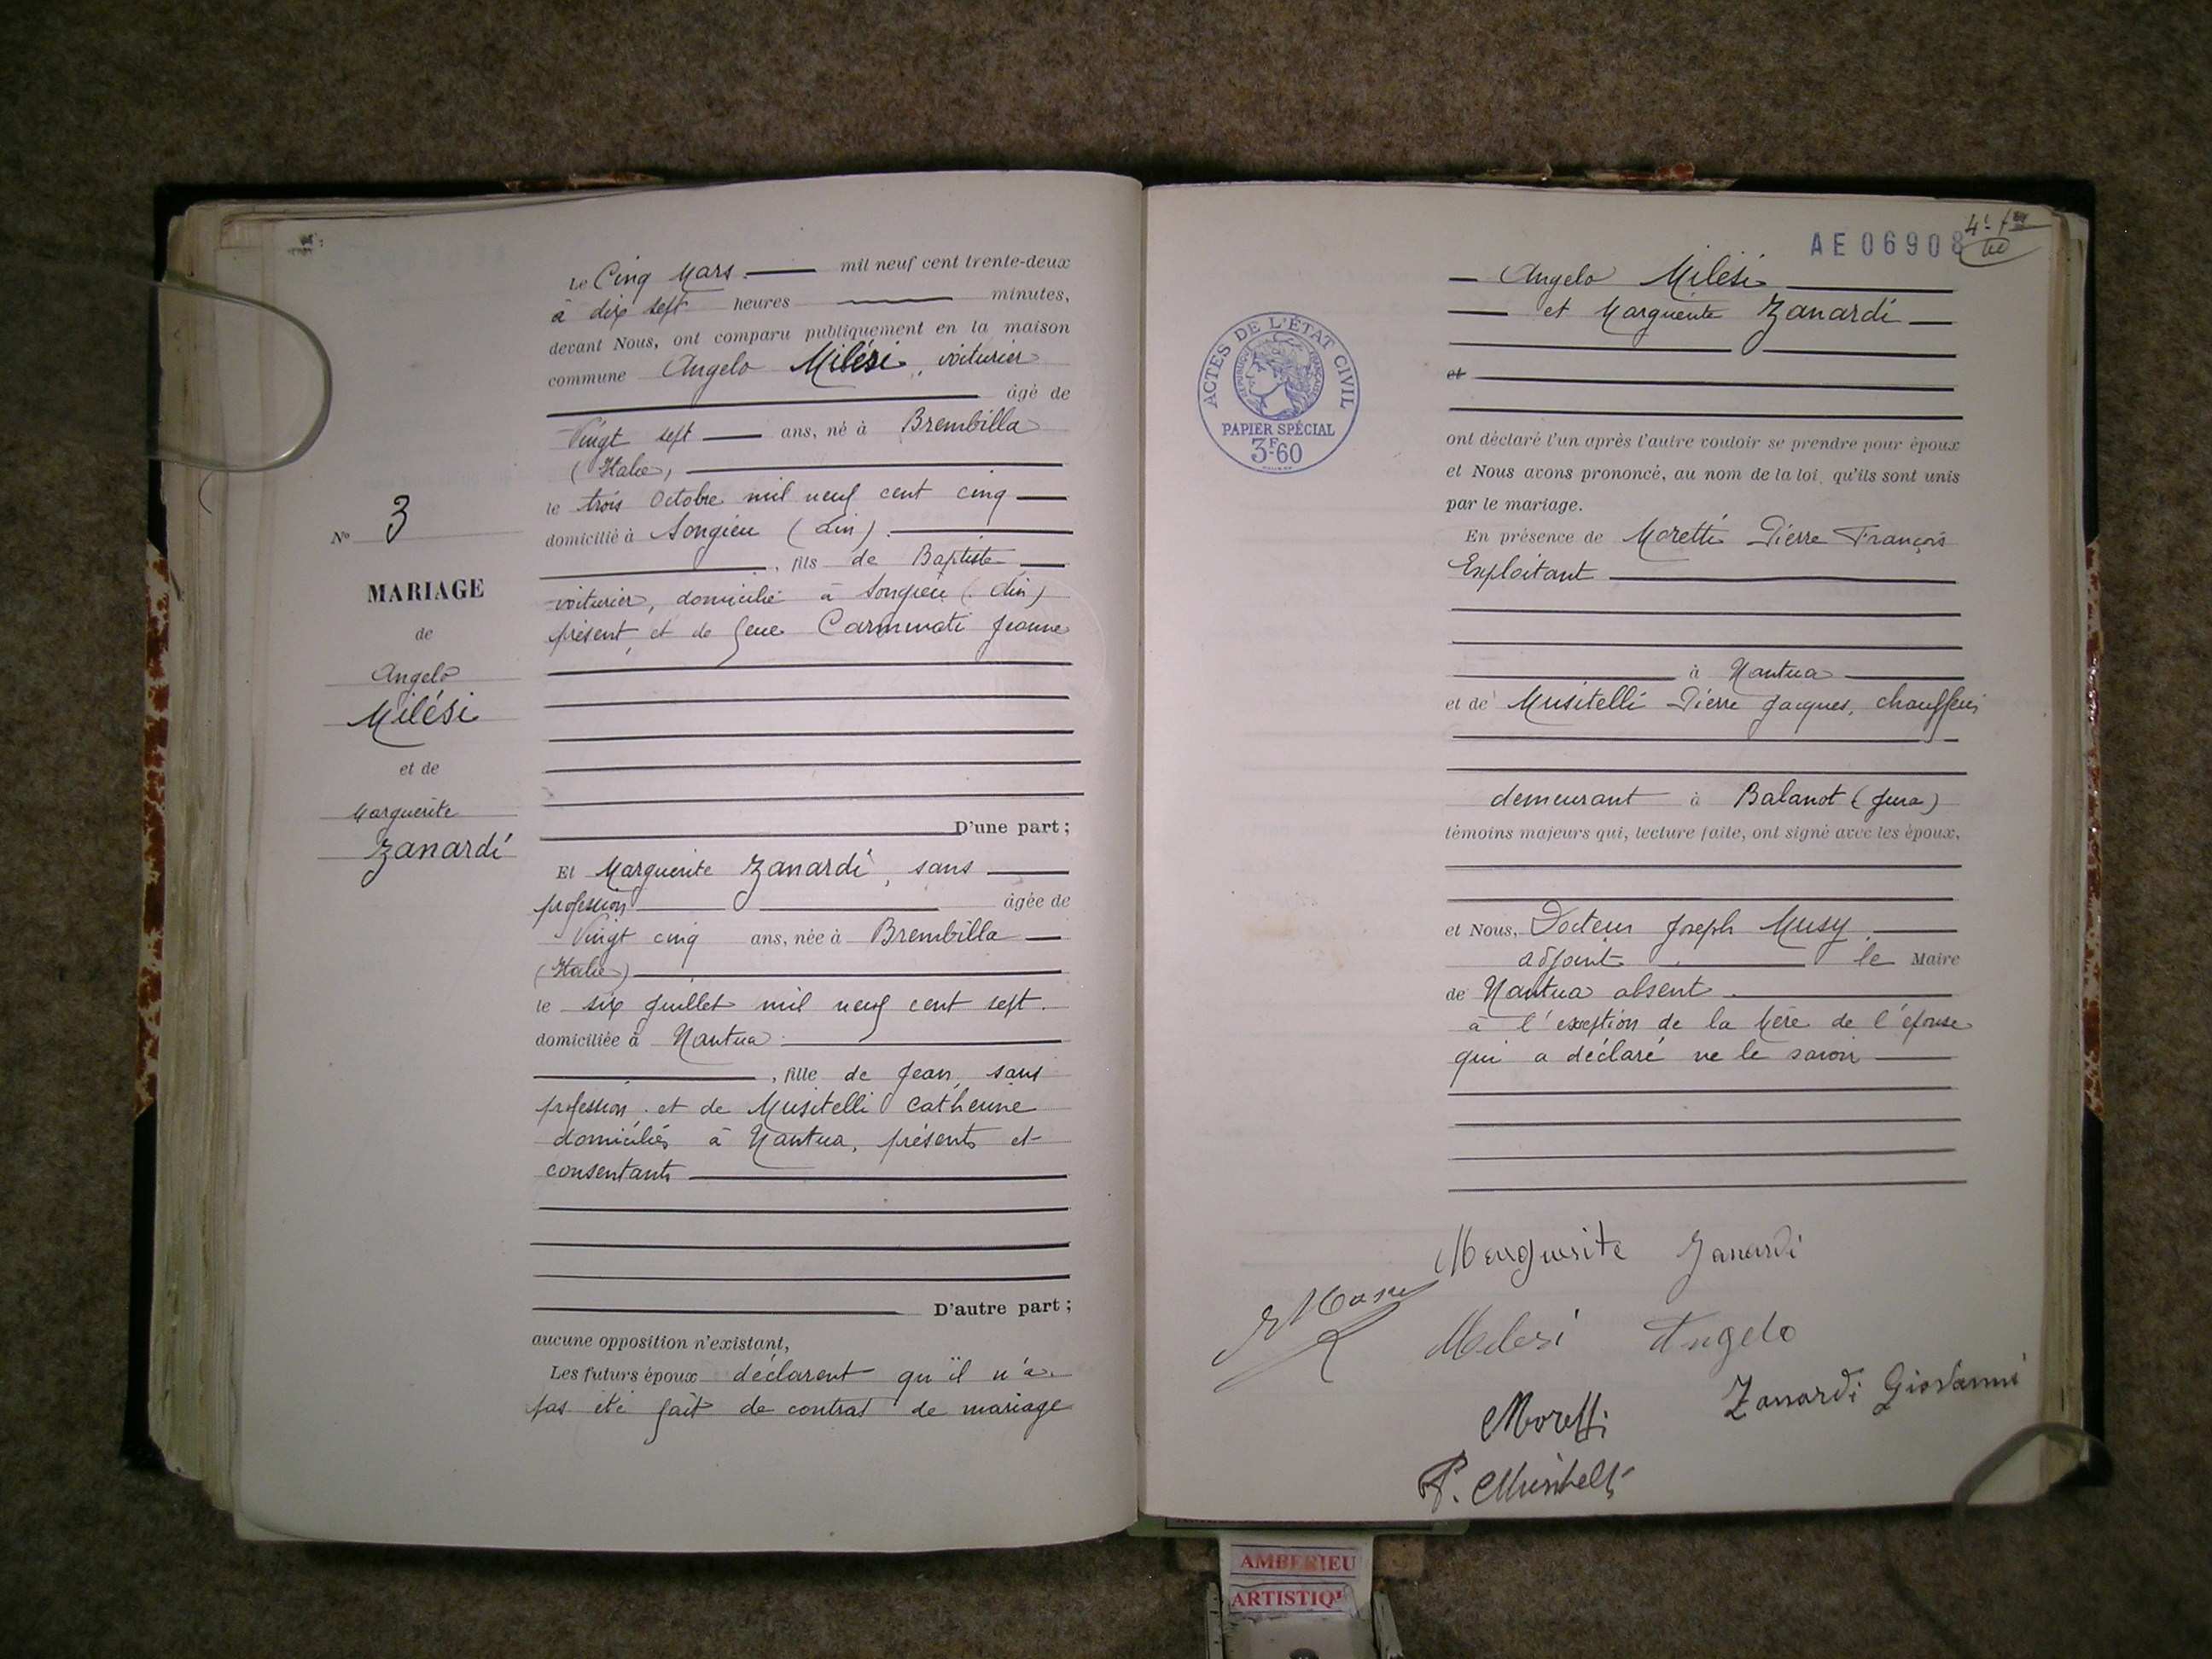 Le Cinq Mars mil neuf cent trente-deux
à dix sept heures minutes,
devant Nous, ont comparu publiquement en la maison
commune Angelo Milési, voiturier
âgé de
Vingt sept ans, né à Brembilla
(Italie)
le trois Octobre mil neuf cent cinq
domicilié à Songieu (Ain).
, fils de Baptiste
voiturier, domicilié à Songieu (Ain)
présent, et de feue Carminati Jeanne
D'une part;
No 3
MARIAGE
de
Angelo
Milési
et de
Marguerite
Zanardi
Et Marguerite Zanardi, sans
profession âgée de
Vingt cinq ans, née à Brembilla
(Italie)
le six Juillet mil neuf cent sept.
domiciliée à Nantua
, fille de Jean, sans
profession et de Musitelli Catherine
domiciliés à Nantua, présents et
consentants
D'autre part;
aucune opposition n'existant,
Les futurs époux déclarent qu'il n'a
pas été fait de contrat de mariage
AE 06908
Angelo Milési
et Marguerite Zanardi
et
ACTES DE L'ÉTAT CIVIL
RÉPUBLIQUE FRANÇAISE
PAPIER SPÉCIAL
3F60
ont déclaré l'un après l'autre vouloir se prendre pour époux
et Nous avons prononcé, au nom de la loi, qu'ils sont unis
par le mariage.
En présence de Moretti Pierre François
Exploitant
à Nantua
et de Musitelli Pierre Jacques, chauffeur
demeurant à Balanot (Jura)
témoins majeurs qui, lecture faite, ont signé avec les époux,
et Nous, Docteur Joseph Musy
adjoint le Maire
de Nantua absent
à l'exception de la Mère de l'épouse
qui a déclaré ne le savoir
Marguerite Zanardi
Milesi Angelo
Zanardi Giovanni
Moretti
P. Musitelli
AMBERIEU
ARTISTIQU